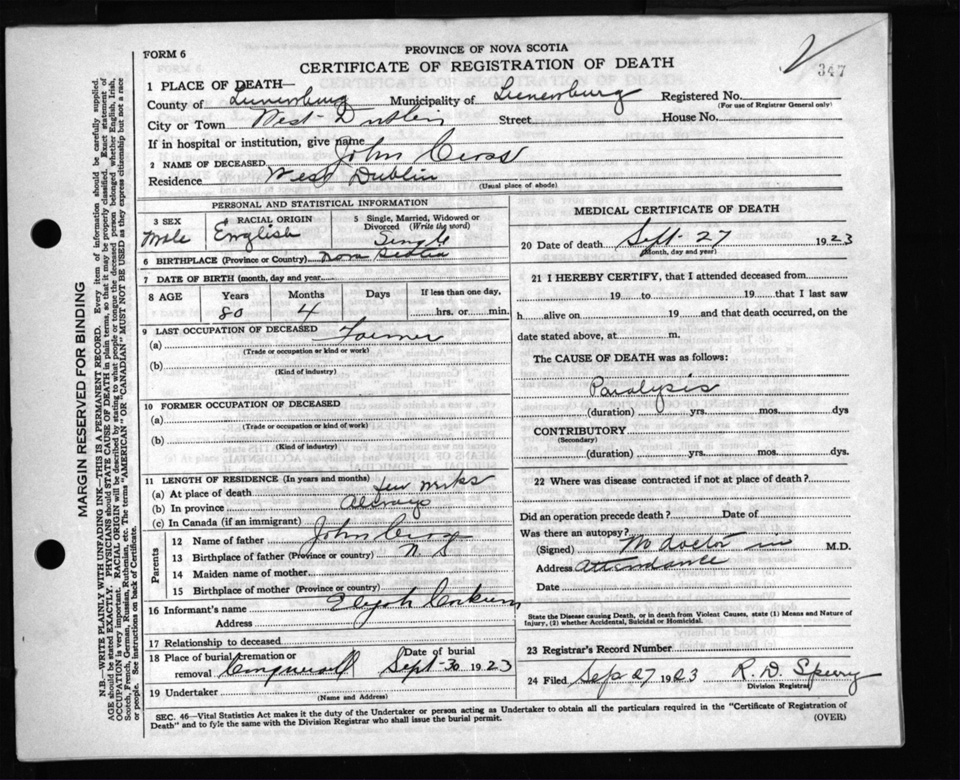 347
FORM 6
PROVINCE OF NOVA SCOTIA
CERTIFICATE OF REGISTRATION OF DEATH
1 PLACE OF DEATH—
County of Lunenburg Municipality of Lunenburg Registered No.
(For use of Registrar General only)
City or Town West Dublin Street House No.
If in hospital or institution, give name
2 NAME OF DECEASED John Cross
Residence West Dublin
(Usual place of abode)
PERSONAL AND STATISTICAL INFORMATION
3 SEX Male
RACIAL ORIGIN English
5 Single, Married, Widowed or Divorced (Write the word) Single
6 BIRTHPLACE (Province or Country) Nova Scotia
7 DATE OF BIRTH (month, day and year)
8 AGE Years Months Days If less than one day,
80 4 hrs. or min.
9 LAST OCCUPATION OF DECEASED
(a) Farmer
(Trade or occupation or kind or work)
(b)
(Kind of industry)
10 FORMER OCCUPATION OF DECEASED
(a)
(Trade or occupation or kind of work)
(b)
(Kind of industry)
11 LENGTH OF RESIDENCE (In years and months)
(a) At place of death few weeks
(b) In province Always
(c) In Canada (if an immigrant)
Parents
12 Name of father John Cross
13 Birthplace of father (Province or country) N S
14 Maiden name of mother
15 Birthplace of mother (Province or country)
16 Informant's name Elijah Corkum
Address
17 Relationship to deceased
18 Place of burial, cremation or removal Date of burial Sept 30 1923
19 Undertaker
(Name and Address)
MEDICAL CERTIFICATE OF DEATH
20 Date of death Sept 27 1923
(Month, day and year)
21 I HEREBY CERTIFY, that I attended deceased from
19 to 19 that I last saw
h alive on 19 and that death occurred, on the
date stated above, at m.
The CAUSE OF DEATH was as follows:
Paralysis
(duration) yrs. mos. dys
CONTRIBUTORY
(Secondary)
(duration) yrs. mos. dys.
22 Where was disease contracted if not at place of death?
Did an operation precede death? Date of
Was there an autopsy?
(Signed) No doctor in M.D.
Address attendance
Date
State the Disease causing Death, or in death from Violent Causes, state (1) Means and Nature of
Injury, (2) whether Accidental, Suicidal or Homicidal.
23 Registrar's Record Number
24 Filed Sep 27 1923 R. D. Sperry
Division Registrar
SEC. 46—Vital Statistics Act makes it the duty of the Undertaker or person acting as Undertaker to obtain all the particulars required in the "Certificate of Registration of
Death" and to fyle the same with the Division Registrar who shall issue the burial permit.
(OVER)
MARGIN RESERVED FOR BINDING
N.B.—WRITE PLAINLY WITH UNFADING INK—THIS IS A PERMANENT RECORD. Every item of information should be carefully supplied.
AGE should be stated EXACTLY. PHYSICIANS should STATE CAUSE OF DEATH in plain terms, so that it may be properly classified. Exact statement of
OCCUPATION is very important. RACIAL ORIGIN will be described by stating to what people or tongue the deceased person belonged whether English, Irish,
Scotch, French, German, Russian, Ruthenian, etc. The terms "AMERICAN" OR "CANADIAN" MUST NOT BE USED as they express citizenship but not a race
or people. See instructions on back of Certificate.